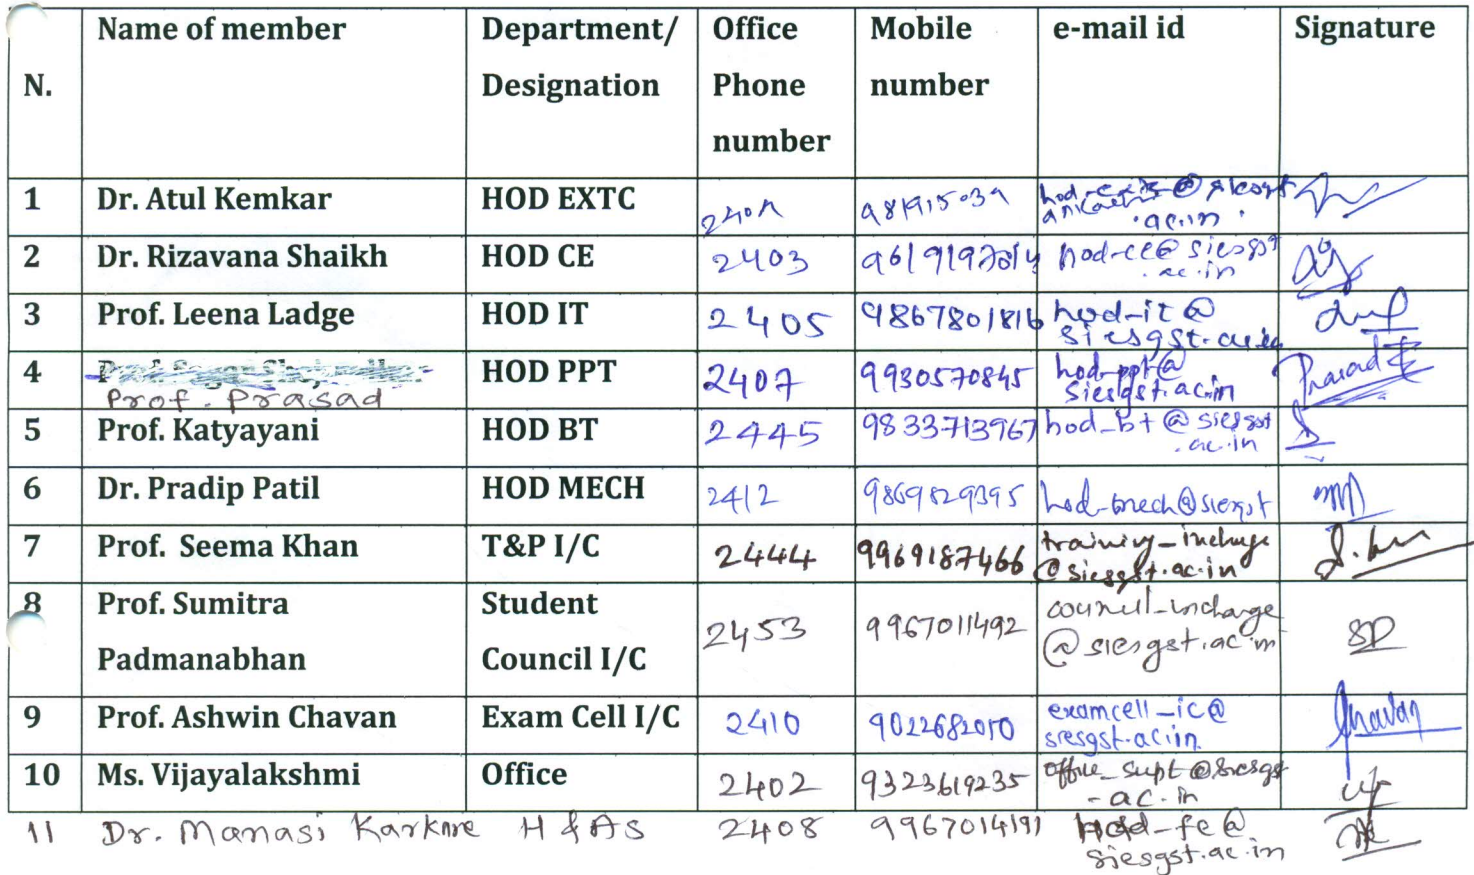 N. Name of member Department/ Designation Office Phone number Mobile number e-mail id Signature
1 Dr. Atul Kemkar HOD EXTC .ac.in
2 Dr. Rizavana Shaikh HOD CE 2403 hod-ce@siesgst .ac.in
3 Prof. Leena Ladge HOD IT 2405 9867801816 hod-it@ siesgst.ac.in
4 Prof. Prasad HOD PPT 2407 9930570845 hod-ppt@ siesgst.ac.in Prasad
5 Prof. Katyayani HOD BT 2445 9833713967 hod_bt@siesgst .ac.in
6 Dr. Pradip Patil HOD MECH 2412 9869829395 hod-mech@siesgst
7 Prof. Seema Khan T&P I/C 2444 9969187466 training_incharge @siesgst.ac.in
8 Prof. Sumitra Padmanabhan Student Council I/C 2453 9967011492 council_incharge @siesgst.ac.in SP
9 Prof. Ashwin Chavan Exam Cell I/C 2410 9022682070 examcell_ic@ siesgst.ac.in
10 Ms. Vijayalakshmi Office 2402 9323619235 office_supt@siesgst .ac.in
11 Dr. Manasi Karknre H & AS 2408 9967014191 hod-fe@ siesgst.ac.in